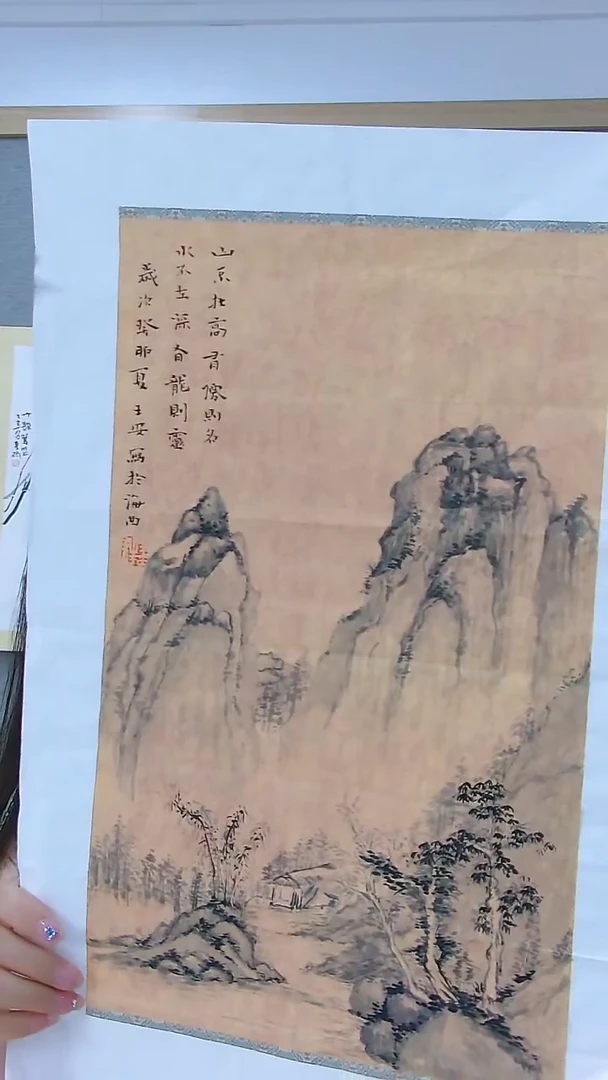 山不在高有僊則名
水不在深有龍則靈
歲次癸卯夏王安寫於海西